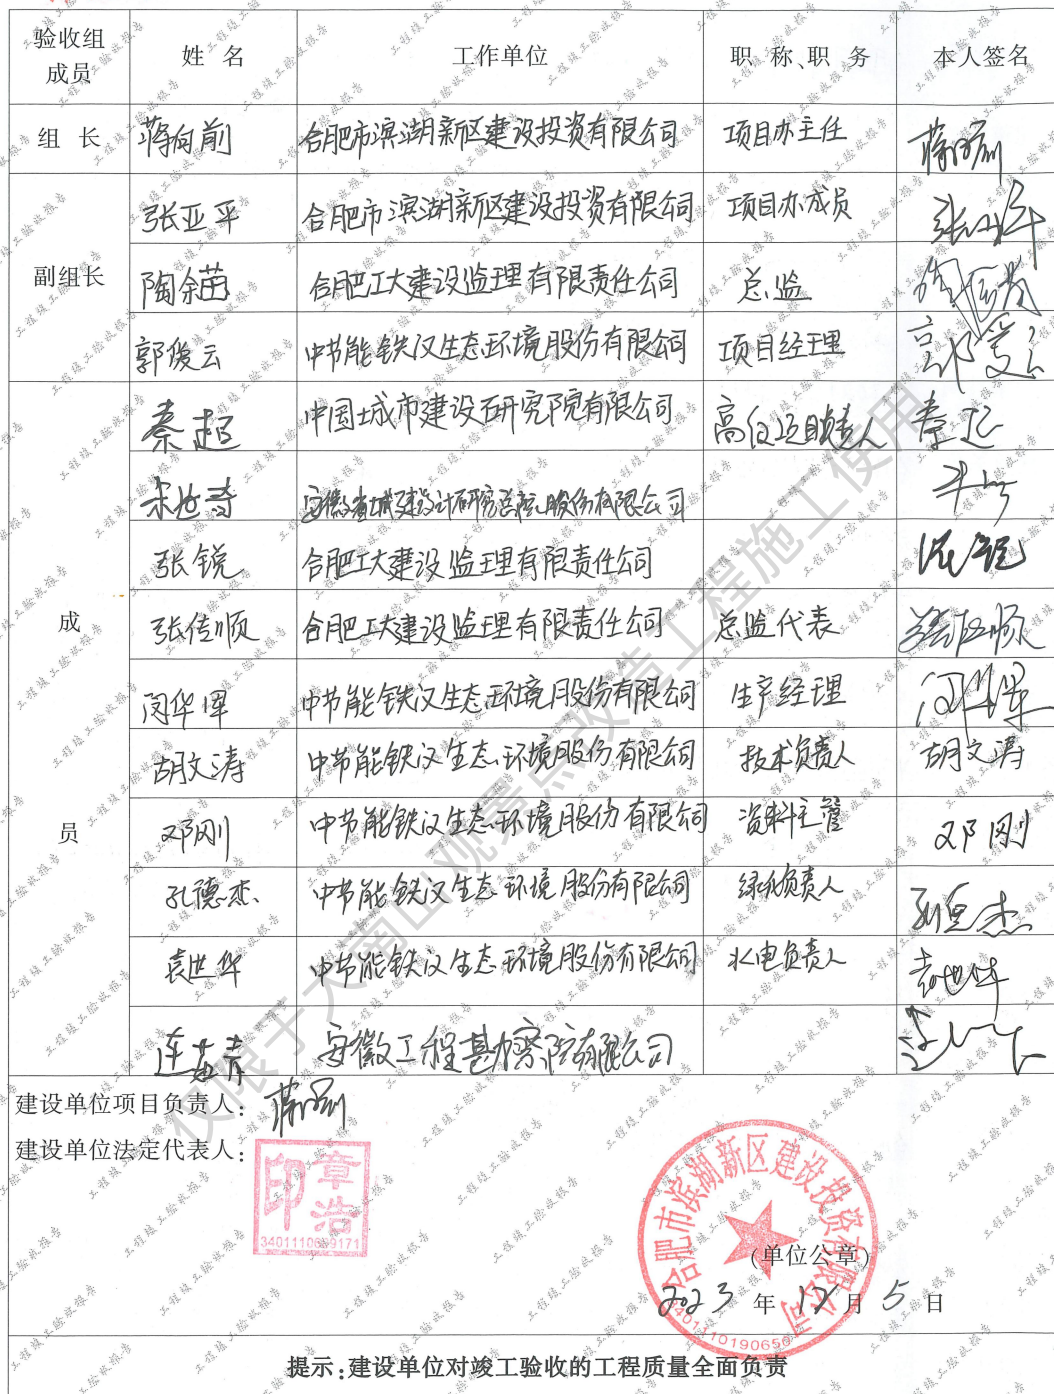 验收组成员 姓名 工作单位 职称、职务 本人签名
组长 蒋向前 合肥市滨湖新区建设投资有限公司 项目办主任 蒋向前
副组长 张亚平 合肥市滨湖新区建设投资有限公司 项目办成员
陶余苗 合肥工大建设监理有限责任公司 总监
郭俊云 中节能铁汉生态环境股份有限公司 项目经理
成员 秦超 中国城市建设研究院有限公司 高级项目负责人 秦超
宋世奇 安徽省城建设计研究总院股份有限公司
张锐 合肥工大建设监理有限责任公司 张锐
张传顺 合肥工大建设监理有限责任公司 总监代表 张传顺
闵华军 中节能铁汉生态环境股份有限公司 生产经理
胡文涛 中节能铁汉生态环境股份有限公司 技术负责人 胡文涛
邓刚 中节能铁汉生态环境股份有限公司 资料主管 邓刚
孔德杰 中节能铁汉生态环境股份有限公司 绿化负责人 孔德杰
袁世华 中节能铁汉生态环境股份有限公司 水电负责人 袁世华
安徽工程勘察院有限公司
建设单位项目负责人: 蒋向前
建设单位法定代表人:
章浩印
合肥市滨湖新区建设投资有限公司
(单位公章)
2023 年 12 月 5 日
提示:建设单位对竣工验收的工程质量全面负责
仅限于大蜀山观景点改造工程施工使用
工程竣工验收报告